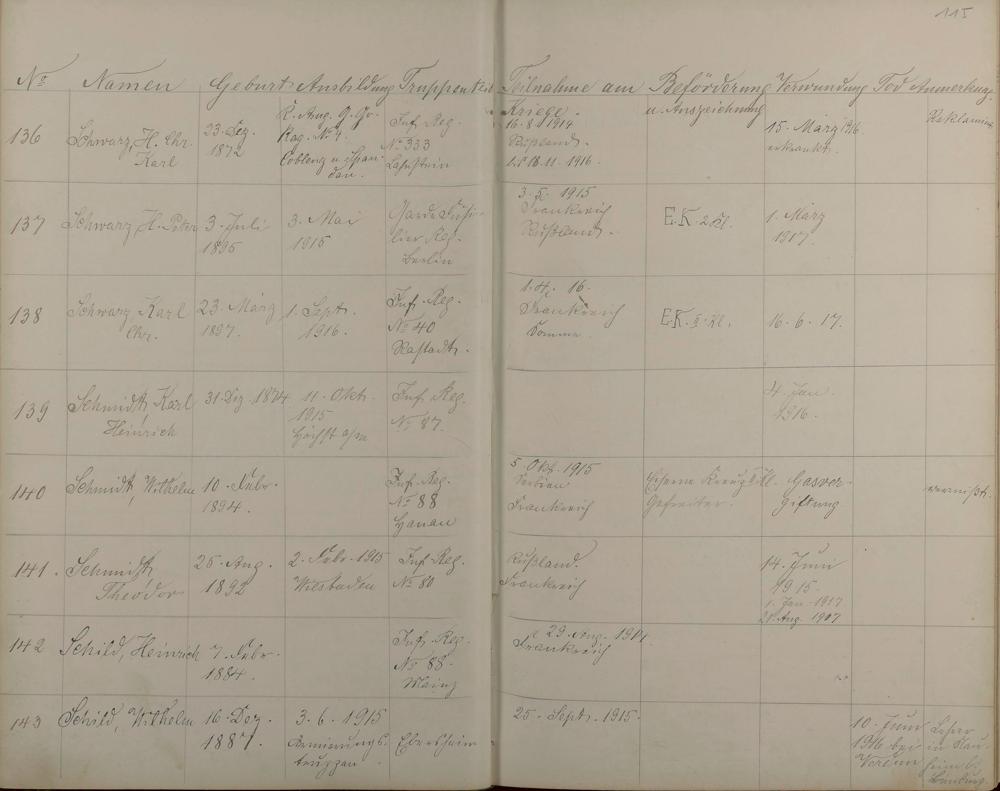 115
No Namen Geburt Ausbildung Truppenteil Teilnahme am Kriege. Beförderung u. Auszeichnung Verwundung Tod Anmerkung.
136 Schwarz, H. Chr. Karl
23. Dez. 1872
Coblenz u. Span-
dau.
Inf. Reg.
No 333
Lahnstein
16.8.1914
Rußland.
15. März 1916
erkrankt.
Reklamiert
137 Schwarz, H. Peter
3. Juli
1895
3. Mai
1915
Garde Füsi-
lier Reg.
Berlin
3. 1915
Frankreich
Rußland.
E.K. 2 Kl.
1. März
1917.
138 Schwarz, Karl
Chr.
23. März
1897.
1. Sept.
1916.
Inf. Reg.
No 40
Rastadt.
16.
Frankreich
Somme.
E.K. II. Kl.
16.6.17.
139 Schmidt, Karl
Heinrich
31. Dez. 1874
11. Okt.
1915
Höchst a/m
Inf. Reg.
No 87.
4. Jan.
1916.
140 Schmidt, Wilhelm
10. Febr.
1894.
Inf. Reg.
No 88
Hanau
5. Okt. 1915
Serbien
Frankreich
Eiserne Kreuz II Kl.
Gefreiter.
Gasver-
giftung
vermißt.
141. Schmidt,
Theodor
25. Aug.
1892
2. Febr. 1915
Wiesbaden
Inf. Reg.
No 80
Rußland.
Frankreich
14. Juni
1915.
1. Jan. 1917
21. Aug. 1917
142 Schild, Heinrich
7. Febr.
1884.
Inf. Reg.
No 88.
Mainz
29. Aug. 1914
Frankreich
143 Schild, Wilhelm
16. Dez.
1887.
3.6.1915
Armierungs-
truppen.
Ebersheim
25. Sept. 1915.
10. Juni
1916 bei
Verdun
Lehrer
in Nau-
heim b.
Limburg.